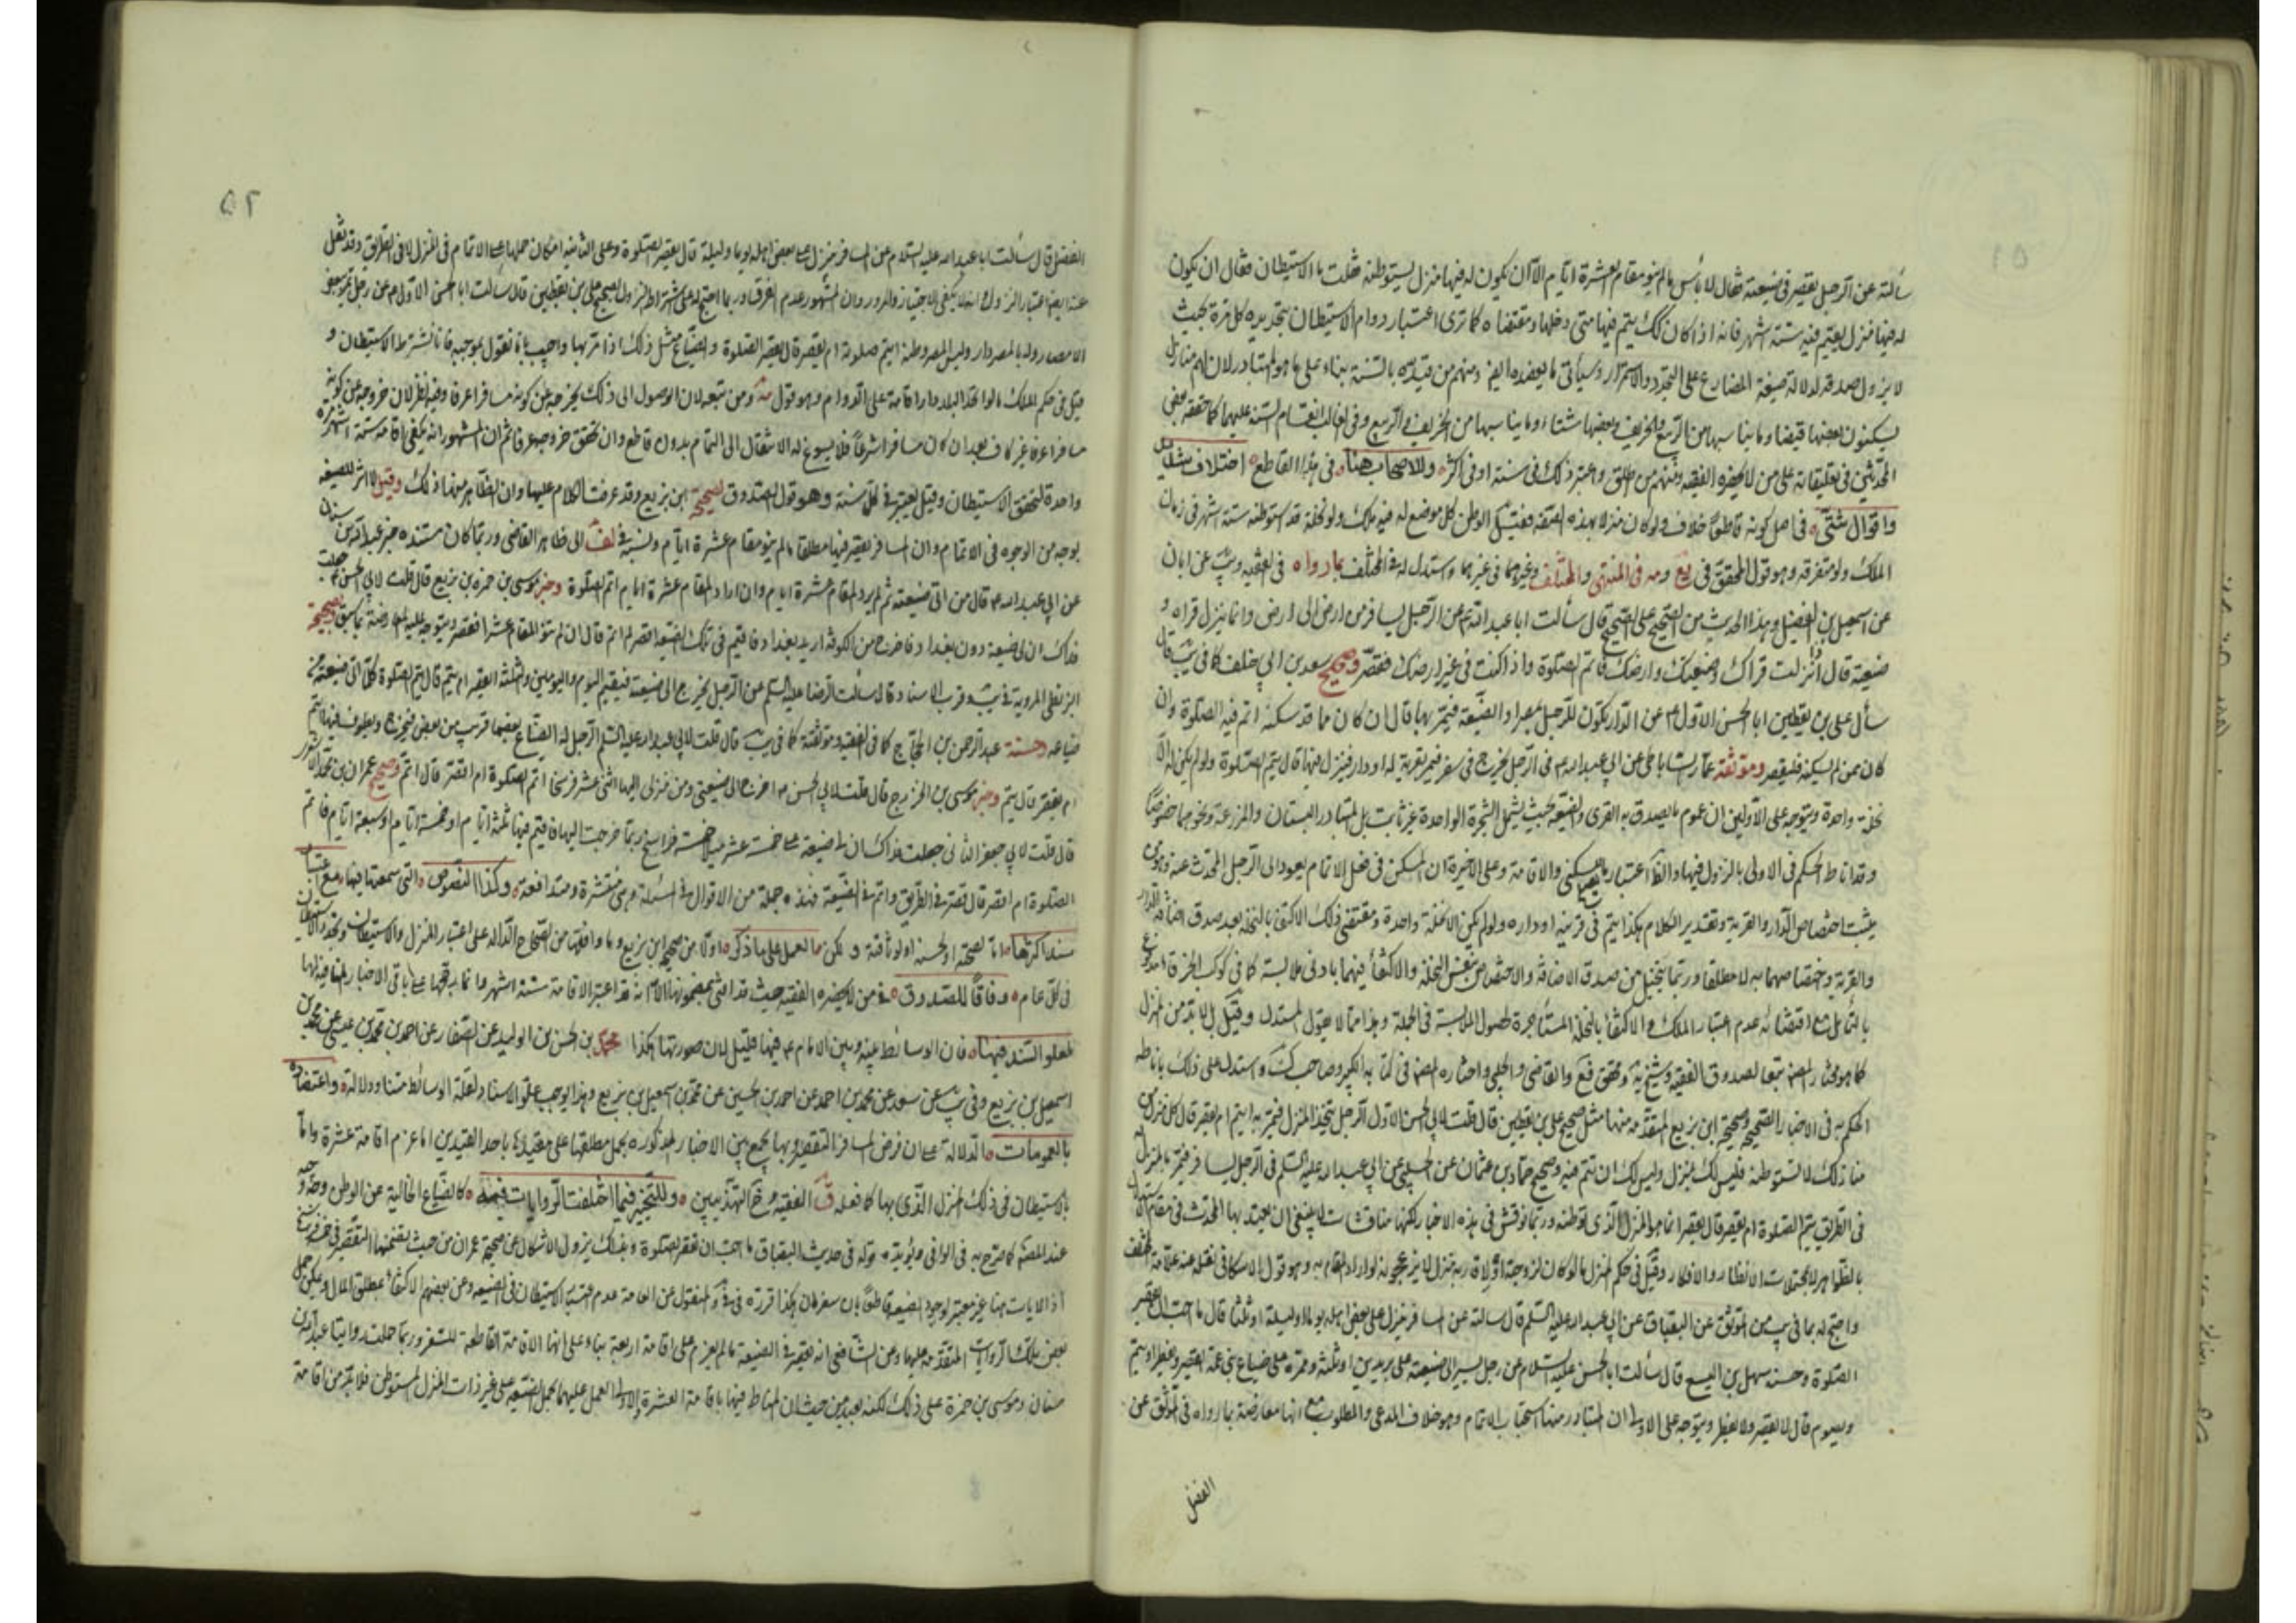 سألته عن الرجل يقصر في ضيعته فقال لا بأس ما لم ينو مقام عشرة ايام الا ان يكون له فيها منزل يستوطنه فقلت ما الاستيطان فقال ان يكون
له فيها منزل يقيم فيه ستة اشهر فانه اذا كان كك يتم فيها متى دخلها ومقتضاه كما ترى اعتبار دوام الاستيطان بتجديده كل مرة بحيث
لا يزول صدقه لدلالة صيغة المضارع على التجدد والاستمرار وسيأتي ما يعضده ايض ومنهم من قيده بالسنة بناء على ما هو المتبادر لان لهم منازل
يسكنون بعضها قيضا وما يناسبها من الربيع والخريف وبعضها شتاء وما يناسبها من الخريف والربيع وفي الغالب انقسام السنة عليهما كما حققه بعض
المحدثين في تعليقاته على من لا يحضره الفقيه ومنهم من اطلق واعتبر ذلك في سنة او في اكثر وللاصحاب هنا في هذا القاطع اختلاف
واقوال شتى في اصل كونه قاطعا خلاف ولو كان منزلا بهذه الصفة فقيل الوطن كل موضع له فيه ملك ولو نخلة قد استوطنه ستة اشهر في زمان
الملك ولو متفرقة وهو قول المحقق في يع ومه في المنتهى والمختلف وغيرهما في غيرهما واستدل له في المختلف بما رواه في الفقيه ويب عن ابان
عن اسمعيل بن الفضل وهذا الحديث من الصحيح على الصحيح قال سألت ابا عبد الله ع عن الرجل يسافر من ارض الى ارض وانما ينزل قراه و
ضيعته قال اذا نزلت قراك وضيعتك وارضك فاتم الصلوة واذا كنت في غير ارضك فقصر وصحيح سعد بن ابي خلف كما في يب قال
سأل علي بن يقطين ابا الحسن الاول ع عن الدار يكون للرجل بمصر او الضيعة فيمر بها قال ان كان مما قد سكنه اتم فيه الصلوة وان
كان ممن لم يسكنه فليقصر وموثقة عمار الساباطي عن ابي عبد الله ع في الرجل يخرج في سفر فيمر بقرية له او دار فينزل فيها قال يتم الصلوة ولو لم يكن له الا
نخلة واحدة ويتوجه على الاولين ان عموم ما يصدق به القرى والضيعة بحيث يشمل الشجرة الواحدة غير ثابت بل المتبادر البستان والمزرعة ونحوهما خصوصا
وقد اناط الحكم في الاولى بالنزول فيها والظ اعتبار السكنى والاقامة وعلى الاخيرة ان المسكن في فعل الاتمام يعود الى الرجل المحدث عنه
يثبت اختصاص الدار والقرية وتقدير الكلام هكذا يتم في قريته او داره ولو لم يكن الا نخلة واحدة ومقتضى ذلك الاكتفاء بالنخلة بعد صدق اضافة الدار
والقرية واختصاصهما به لا مطلقا وربما يتخيل من صدق الاضافة والاختصاص بنفس النخلة والاكتفاء فيهما بادنى ملابسة كما في كوكب الخرقاء
بالتأمل مع اقتضائه عدم اعتبار الملك والاكتفاء بالنخلة المستأجرة لحصول الملابسة في الجملة وهذا مما لا يقول المستدل وقيل بل لا بد من المنزل
كما هو مختار المصنف تبعا لصدوق الفقيه وشيخ يه ومحقق فع والقاضي والحلبي واختاره المصنف في كتابه الكبير وصاحب ك واستدل على ذلك باناطة
الحكم به في الاخبار الصحيحة وصحيحة ابن بزيع المتقدمة منها مثل صحيح علي بن يقطين قال قلت لابي الحسن الاول الرجل يتخذ المنزل فيمر به ايتم ام يقصر قال كل منزل من
منازلك لا تستوطنه فليس لك بمنزل وليس لك ان تتم فيه وصحيح حماد بن عثمان عن الحلبي عن ابي عبد الله عليه السلم في الرجل يسافر فيمر بالمنزل
في الطريق يتم الصلوة ام يقصر قال يقصر انما هو المنزل الذي توطنه وربما نوقش في هذه الاخبار لكنها مناقشات لا ينبغي ان يعتد بها المحدث في مقام
بالظواهر لا بمحتملات الانظار والافكار وقيل في حكم المنزل ما لو كان لزوجته او لاقاربه منزل لا يزعجونه لو اراد المقام به وهو قول الاسكافي نقله عنه علامة المختلف
واحتج له بما في يب من الموثق عن البقباق عن ابي عبد الله عليه السلم قال سالته عن المسافر ينزل على بعض اهله يوما او ليلة او ثلثا قال ما احب ان يقصر
الصلوة وحسنة سهل بن اليسع قال سألت ابا الحسن عليه السلام عن رجل يسير الى ضيعته على بريدين او ثلثة وممره على ضياع بني عمه ايقصر ويفطر او يتم
ويصوم قال لا يقصر ولا يفطر ويتوجه على الاولى ان المتبادر منها استحباب الاتمام وهو خلاف المدعى والمطلوب مع انها معارضة بما رواه في الموثق عن
الفضل
٥٢
الفضل قال سألت ابا عبد الله عليه السلام عن المسافر ينزل على بعض اهله يوما وليلة قال يقصر الصلوة وعلى الثانية امكان حملها على الاتمام في المنزل لا في الطريق وقد نقل
عنه ايض اعتبار النزول وانه لا يكفي الاجتياز والمرور وان المشهور عدم الفرق وربما احتج له على اشتراط النزول بصحيح علي بن يقطين قال سألت ابا الحسن الاول ع عن رجل يمر ببعض
الامصار وله بالمصر دار وليس المصر وطنه ايتم صلوته ام يقصر قال يقصر الصلوة والضياع مثل ذلك اذا مر بها واجيب بانا نقول بموجبه فانا نشترط الاستيطان و
قيل في حكم الملك ما لو اتخذ البلد دار اقامة على الدوام وهو قول مه ومن تبعه لان الوصول الى ذلك يخرجه عن كونه مسافرا عرفا وفيه نظر لان خروجه عن كونه
مسافرا عرفا غير كاف بعد ان كان مسافرا شرعا فلا يسوغ له الانتقال الى التمام بدون قاطع وان تحقق خروجه عرفا ثم ان المشهور انه يكفي اقامة ستة اشهر مرة
واحدة لتحقق الاستيطان وقيل يعتبر في كل سنة وهو قول الصدوق لصحيحة ابن بزيع وقد عرفت الكلام عليها وان الظاهر منها ذلك وقيل لا اثر للضيعة
بوجه من الوجوه في الاتمام وان المسافر يقصر فيها مطلقا ما لم ينو مقام عشرة ايام ونسبه في لف الى ظاهر القاضي وربما كان مستنده خبر عبد الله بن سنان
عن ابي عبد الله ع قال من اتى ضيعته ثم لم يرد المقام عشرة ايام قصر وان اراد المقام عشرة ايام اتم الصلوة وخبر موسى بن حمزة بن بزيع قال قلت لابي الحسن ع جعلت
فداك ان لي ضيعة دون بغداد فاخرج من الكوفة اريد بغداد فاقيم في تلك الضيعة اقصر ام اتم قال ان لم تنو المقام عشرا فقصر ويتوجه عليه المعارضة بما سبق وصحيحة
البزنطي المروية في يب وقرب الاسناد قال سألت الرضا عليه السلم عن الرجل يخرج الى ضيعته فيقيم اليوم واليومين والثلثة ايقصر ام يتم قال يتم الصلوة كلما اتى ضيعة من
ضياعه وحسنة عبد الرحمن بن الحجاج كما في الفقيه وموثقته كما في يب قال قلت لابي عبد الله عليه السلم الرجل له الضياع بعضها قريب من بعض فيخرج ويطوف فيها ايتم
ام يقصر قال يتم وخبر موسى بن الخزرج قال قلت لابي الحسن ع اخرج الى ضيعتي ومن منزلي اليها اثنى عشر فرسخا اتم الصلوة ام اقصر قال اتم وصحيح عمران بن محمد
قال قلت لابي جعفر الثاني جعلت فداك ان لي ضيعة على خمسة عشر ميلا خمسة فراسخ ربما خرجت اليها فاقيم فيها ثلثة ايام او خمسة ايام او سبعة ايام فاتم
الصلوة ام اقصر قال قصر في الطريق واتم في الضيعة فهذه جملة من الاقوال في المسئلة وهي منتشرة ومتدافعة وكذا النصوص التي سمعتها فيها مع اعتبار
سند اكثرها اما لصحته او لحسنه او لوثاقته ولكن ما العمل على ما ذكر اولا من صحيح ابن بزيع وما وافقها من الصحاح الدالة على اعتبار المنزل والاستيطان وتجدد الاستيطان
في كل عام وفاقا للصدوق في من لا يحضره الفقيه حيث قد افتى بمضمونها الا انه قد اعتبر الاقامة ستة اشهر وانما يرجحها على باقي الاخبار المنافية لها
لعلو السند فيها فان الوسائط بينه وبين الامام ع فيها قليل لان صورتها هكذا محمد بن الحسن بن الوليد عن الصفار عن احمد بن محمد بن عيسى عن محمد بن
اسمعيل بن بزيع وفي يب عن سعد عن محمد بن احمد عن احمد بن الحسين عن محمد بن اسمعيل بن بزيع وهذا يوجب علو الاسناد لقلة الوسائط متنا ودلالة واعتضاده
بالعمومات الدلالة على ان فرض المسافر التقصير وبها يجمع بين الاخبار المذكورة بحمل مطلقها على مقيدها باحد القيدين اما عزم اقامة عشرة واما
بالاستيطان في ذلك المنزل الذي بها كما فعله ق الفقيه وخ التهذيبين وللتخير فيما اختلفت الروايات فيه كالضياع الخالية عن الوطن وجه
عند المصنف كما صرح به في الوافي ويؤيده قوله في حديث البقباق ما احب ان يقصر الصلوة وبذلك يزول الاشكال عن صحيحة عمران من حيث تضمنها التقصير في خمسة فراسخ
اذ الاياب هنا غير معتبر لوجود الضيعة قاطعا بان سفرهان هكذا قرره في والمنقول عن العامة عدم قيد الاستيطان في الضيعة وعن بعضهم الاكتفاء بمطلق المال ويمكن حمل
بعض تلك الروايات المتقدمة عليها وعن الشافعي انه يقصر في الضيعة ما لم يعزم على اقامة اربعة بناء على انها الاقامة القاطعة للسفر وربما حملت روايتا عبد الله بن
سنان وموسى بن حمزة على ذلك لكنه بعيد من حيث ان المناط فيها باقامة العشرة والاولى العمل عليهما بحمل الضيعة على غير ذات المنزل المستوطن فلا بد من اقامة